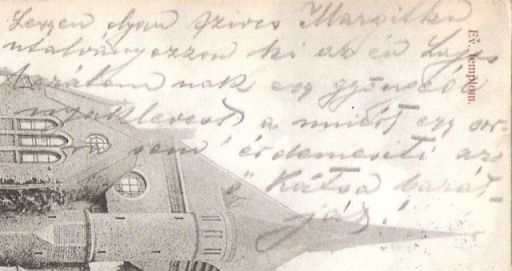 Legyen olyan szives Margitka
utalványozzon ki az én Lajos
barátom nak egy gyönyörű
nyaklevest a miért egy sor
ra sem érdemesiti az
ő Kátsa barát-
ját!
Ev. templom.